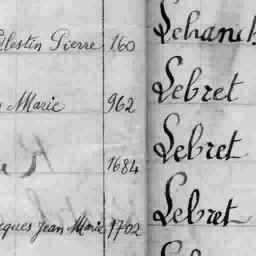 élestin Pierre 160 Lehanch
Marie 962 Lebret
1684 Lebret
cques Jean Marie 1702 Lebret